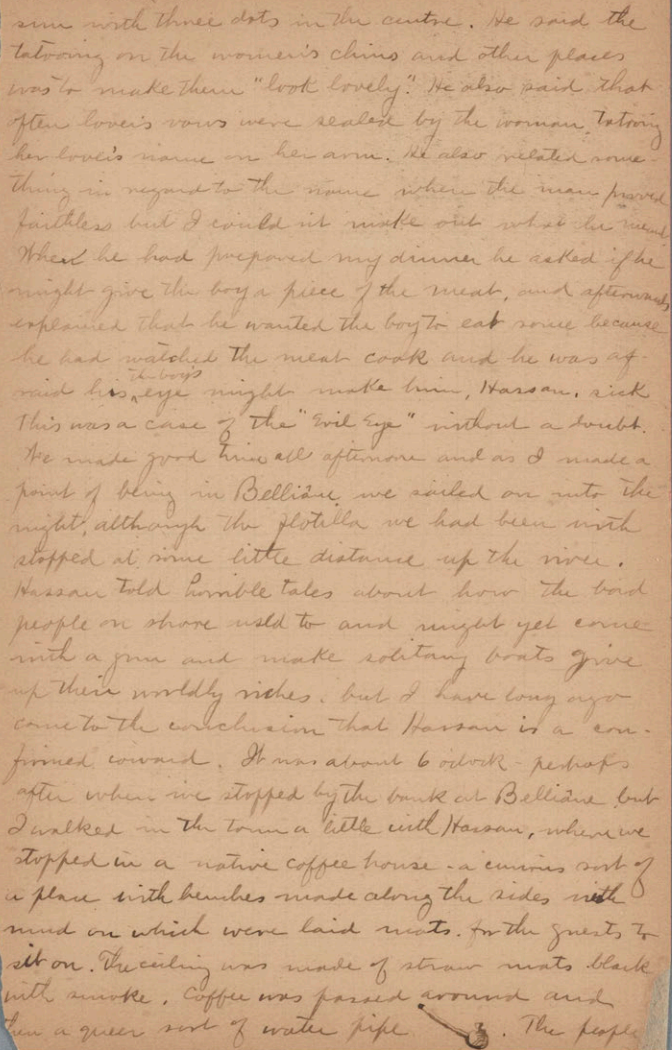 sun with three dots in the centre. He said the
tatooing on the women's chins and other places
was to make them "look lovely." He also said that
often lover's vows were sealed by the woman tatooing
her lover's name on her arm. He also related some-
thing in regard to the name where the man proved
faithless but I could n't make out what he meant
When he had prepared my dinner he asked if he
might give the boy a piece of the meat, and afterwards
explained that he wanted the boy to eat some because
he had watched the meat cook and he was af-
raid his, the boy's eye might make him, Hassan, sick
This was a case of the "Evil Eye" without a doubt.
We made good time all afternoon and as I made a
point of being in Belliane we sailed on into the
night, although the flotilla we had been with
stopped at some little distance up the river.
Hassan told horrible tales about how the bad
people on shore used to and might yet come
with a gun and make solitary boats give
up their worldly riches, but I have long ago
come to the conclusion that Hassan is a con-
firmed coward. It was about 6 o'clock - perhaps
after when we stopped by the bank at Belliane but
I walked in the town a little with Hassan, where we
stopped in a native coffee house - a curious sort of
a place with benches made along the sides with
mud on which were laid mats for the guests to
sit on. The ceiling was made of straw mats black
with smoke. Coffee was passed around and
then a queer sort of water pipe. The people